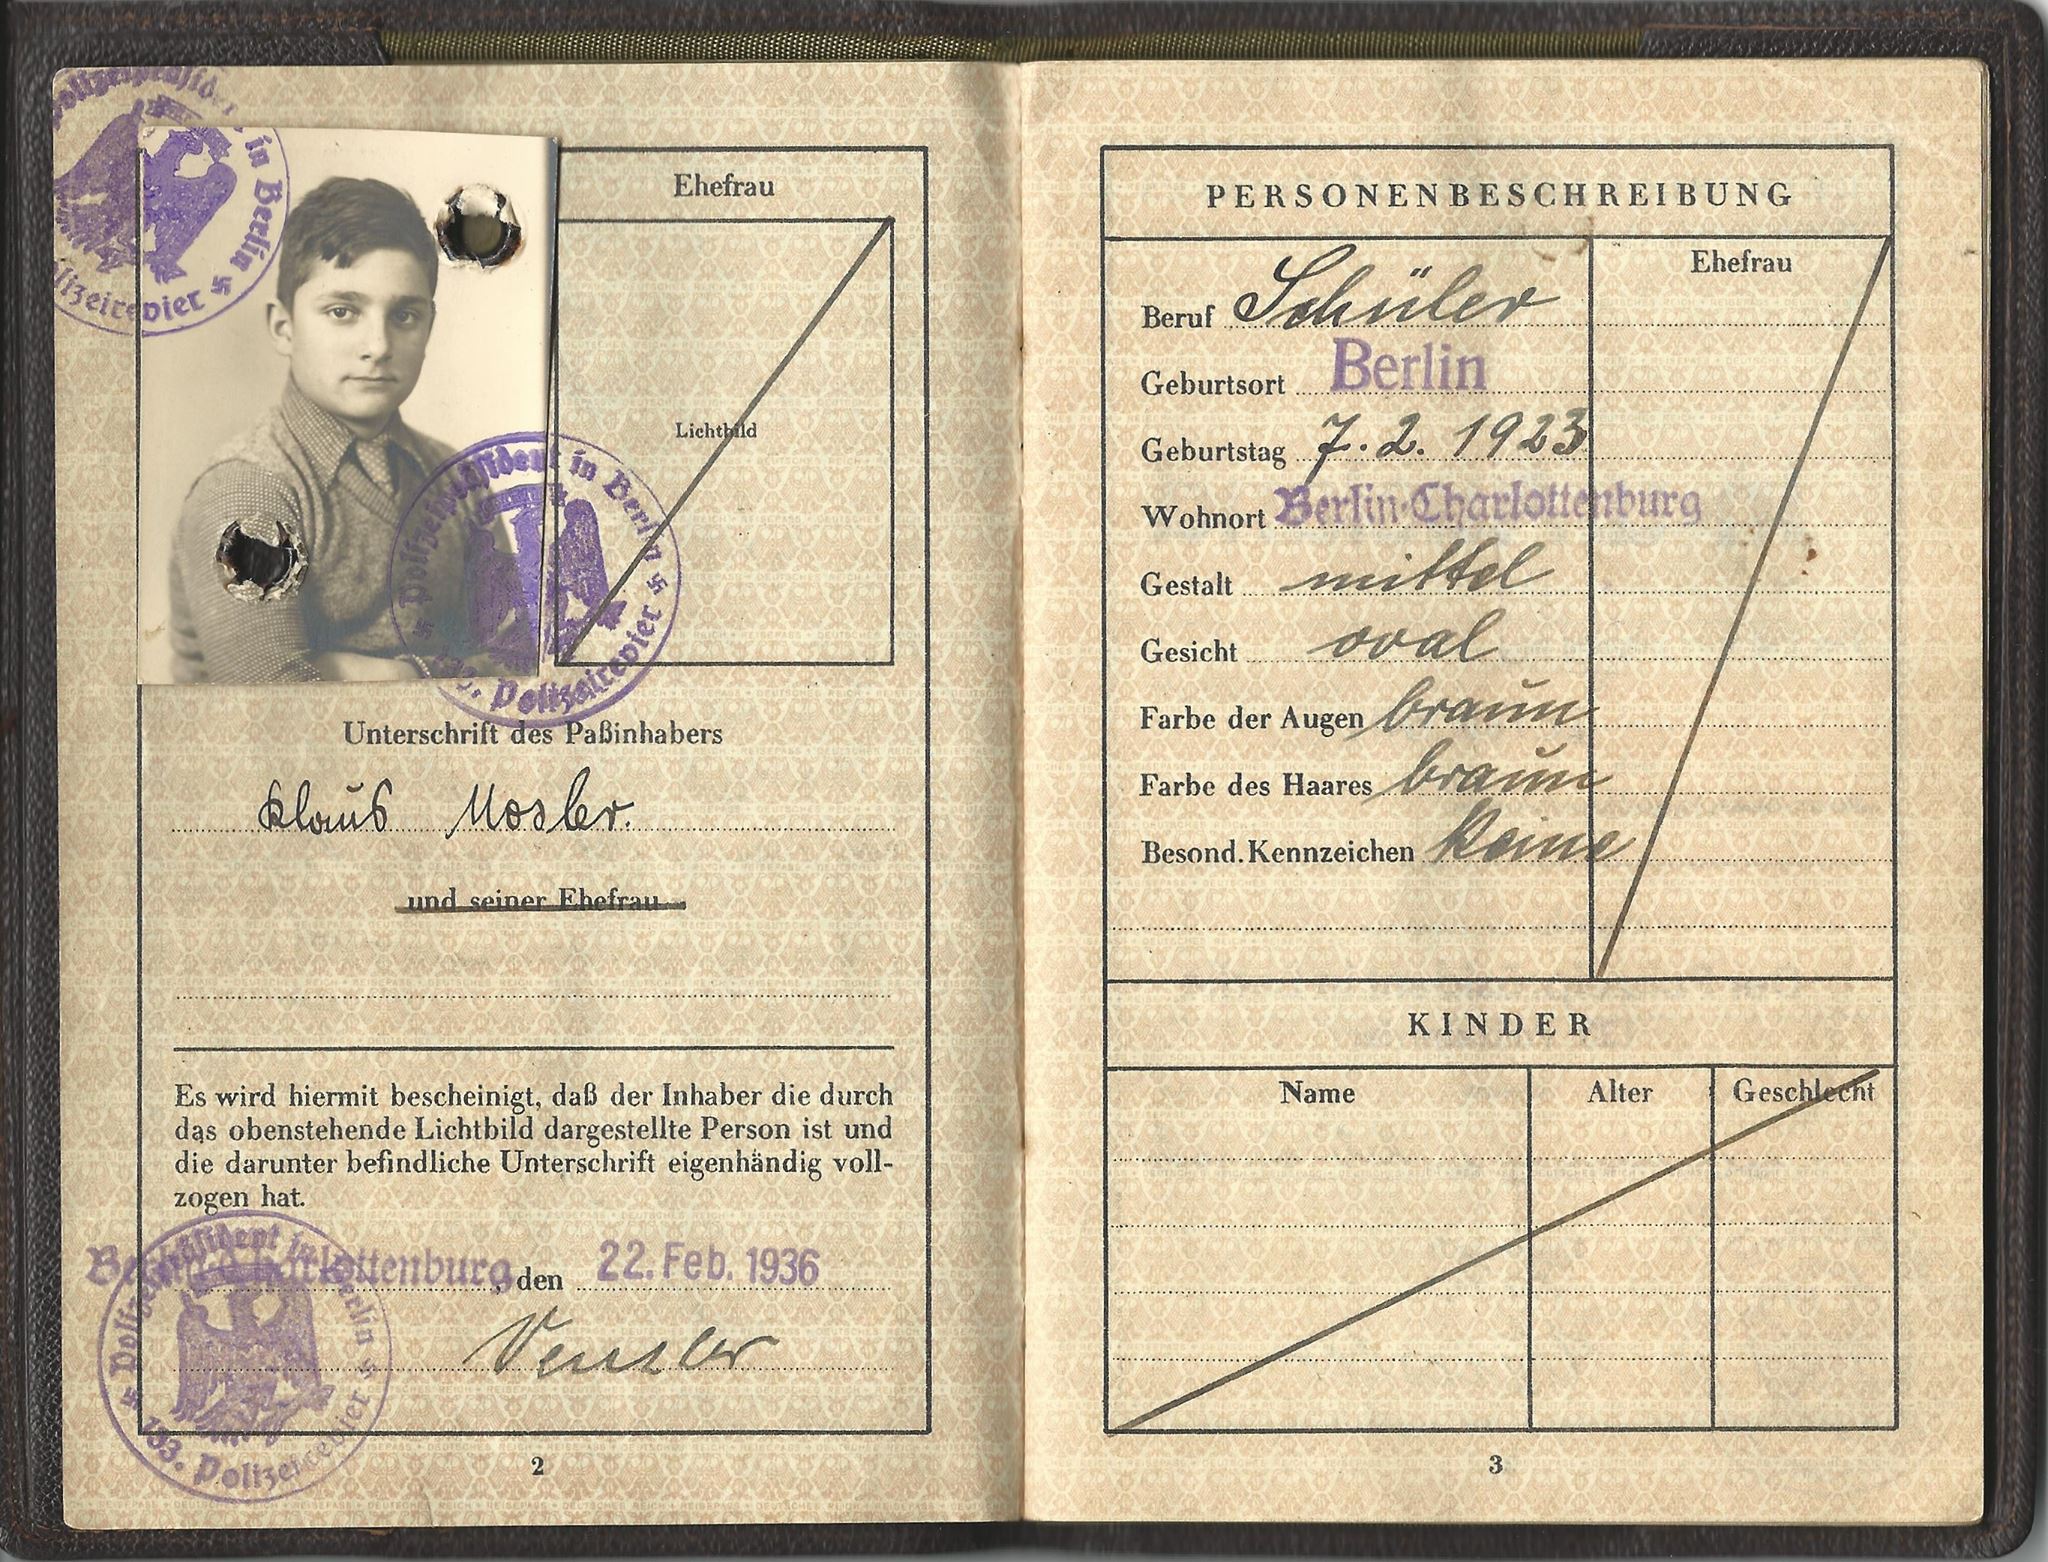 Polizeipräsident in Berlin
Polizeirevier
Ehefrau
Lichtbild
Polizeipräsident in Berlin
133. Polizeirevier
Unterschrift des Paßinhabers
Klaus Mosler.
und seiner Ehefrau
Es wird hiermit bescheinigt, daß der Inhaber die durch
das obenstehende Lichtbild dargestellte Person ist und
die darunter befindliche Unterschrift eigenhändig voll-
zogen hat.
Berlin-Charlottenburg, den 22. Feb. 1936
Polizeipräsident in Berlin
133. Polizeirevier
2
PERSONENBESCHREIBUNG
Ehefrau
Beruf Schüler
Geburtsort Berlin
Geburtstag 7. 2. 1923
Wohnort Berlin-Charlottenburg
Gestalt mittel
Gesicht oval
Farbe der Augen braun
Farbe des Haares braun
Besond. Kennzeichen Keine
KINDER
Name Alter Geschlecht
3